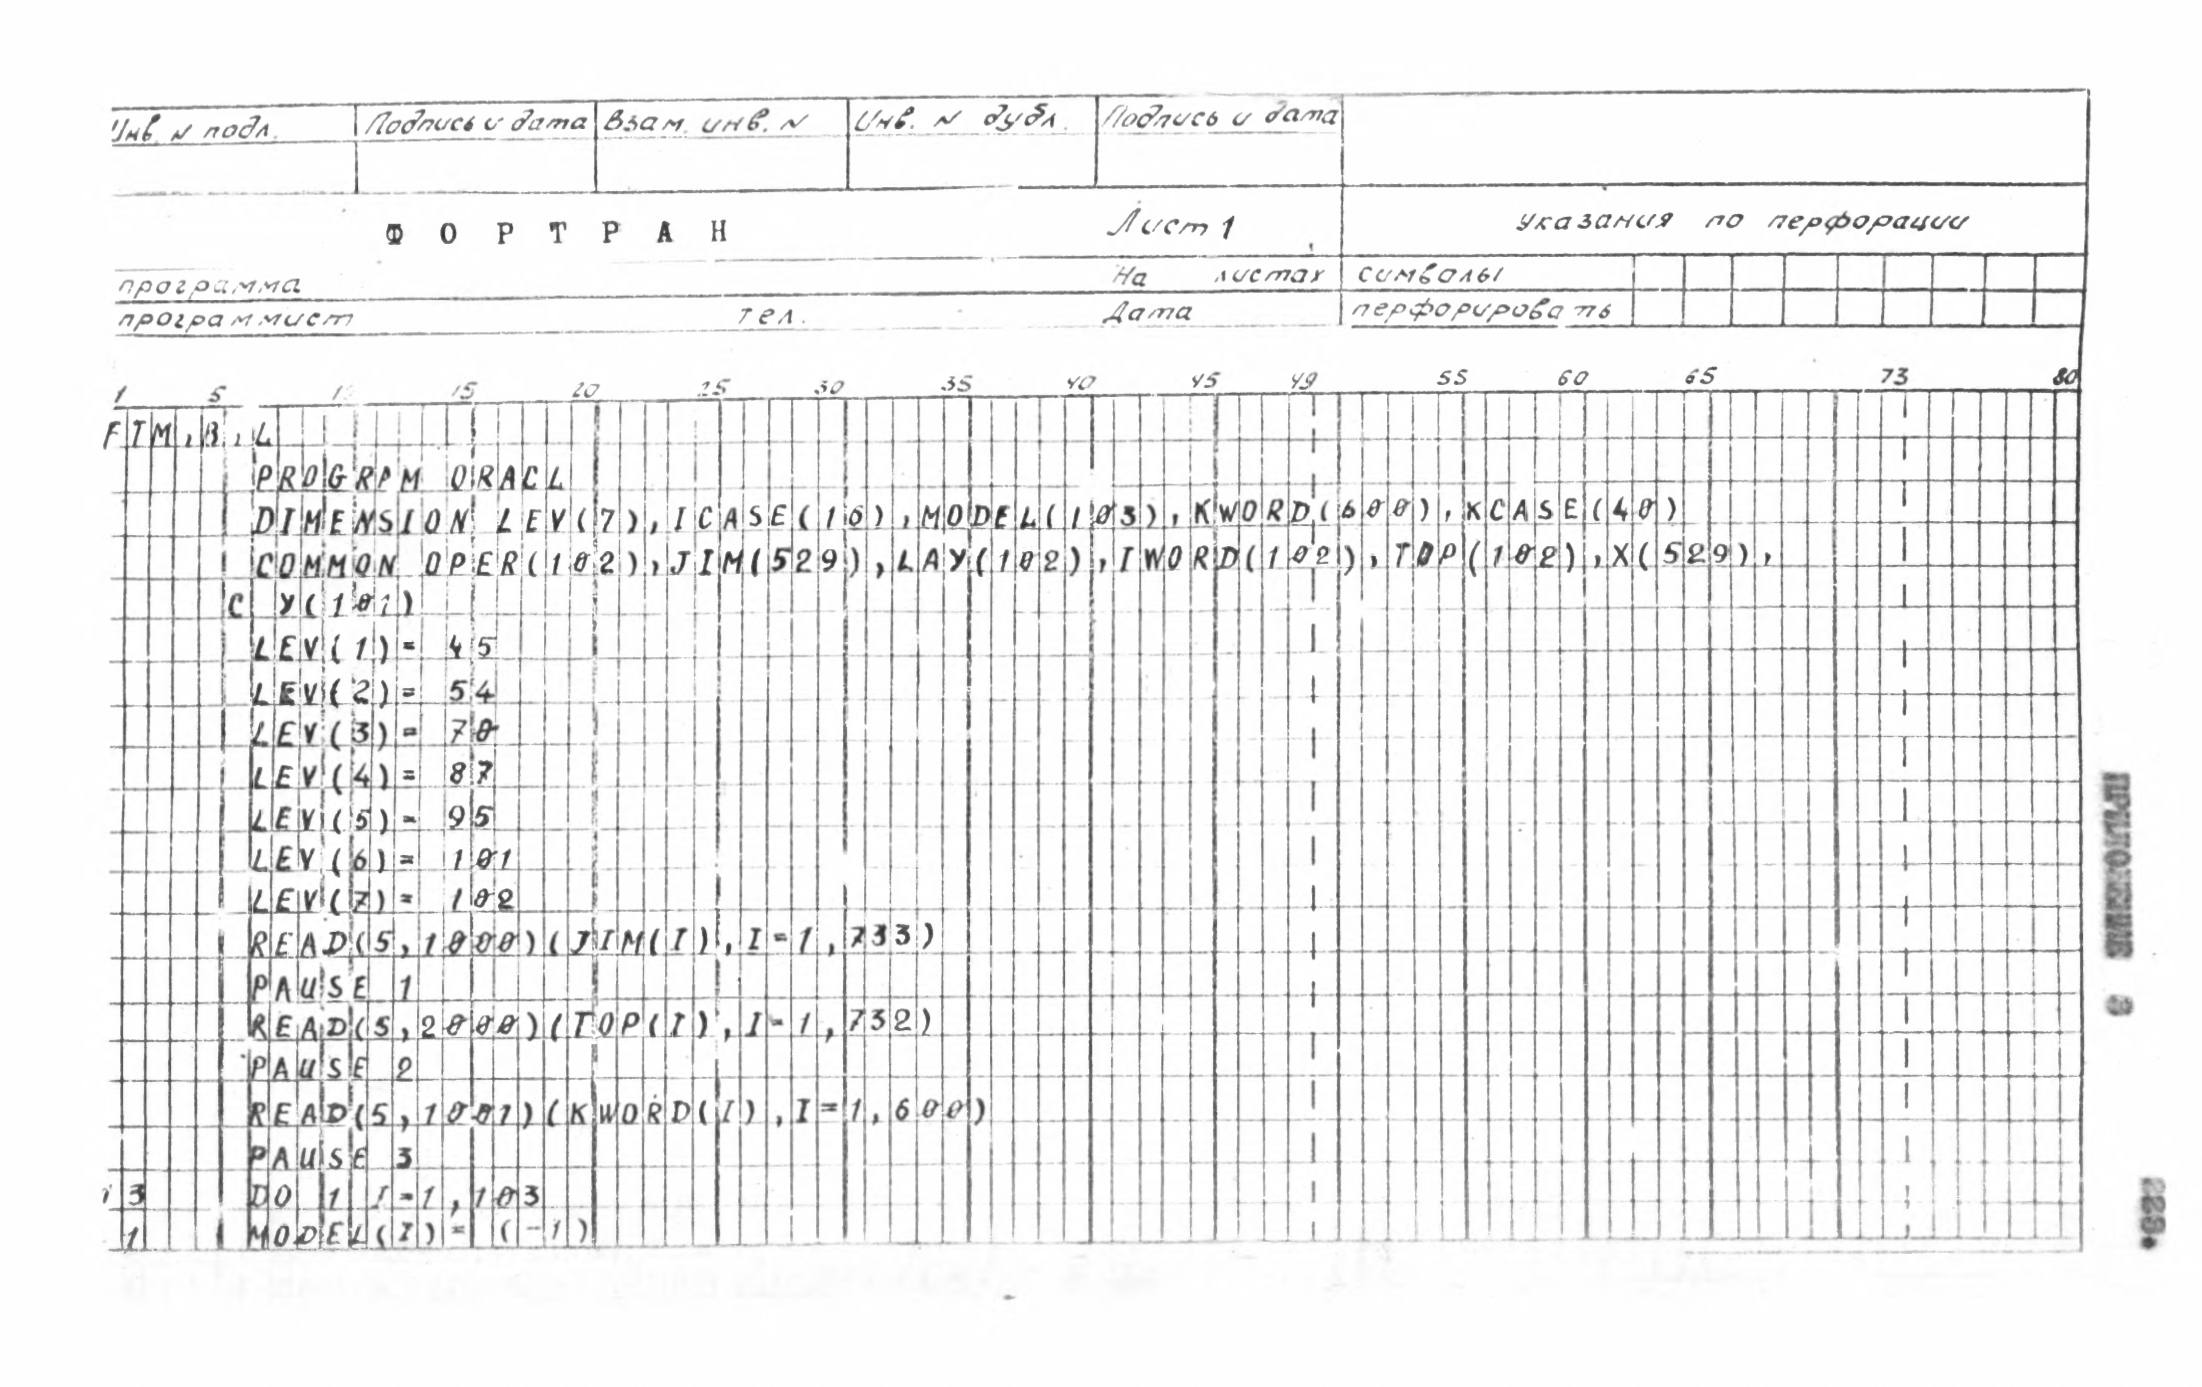 Инв. N подл. Подпись и дата Взам. инв. N Инв. N дубл. Подпись и дата
ФОРТРАН Лист 1 указания по перфорации
программа На листах символы
программист тел. Дата перфорировать
1 5 10 15 20 25 30 35 40 45 49 55 60 65 73 80
FTM,B,L
PROGRAM ORACL
DIMENSION LEV(7),ICASE(16),MODEL(103),KWORD(600),KCASE(40)
COMMON OPER(102),JIM(529),LAY(102),IWORD(102),TOP(102),X(529),
C Y(101)
LEV(1)= 45
LEV(2)= 54
LEV(3)= 70
LEV(4)= 87
LEV(5)= 95
LEV(6)= 101
LEV(7)= 102
READ(5,1000)(JIM(I),I=1,733)
PAUSE 1
READ(5,2000)(TOP(I),I=1,732)
PAUSE 2
READ(5,1001)(KWORD(I),I=1,600)
PAUSE 3
13 DO 1 I=1,103
1 MODEL(I)= (-1)
ПРИЛОЖЕНИЕ 3